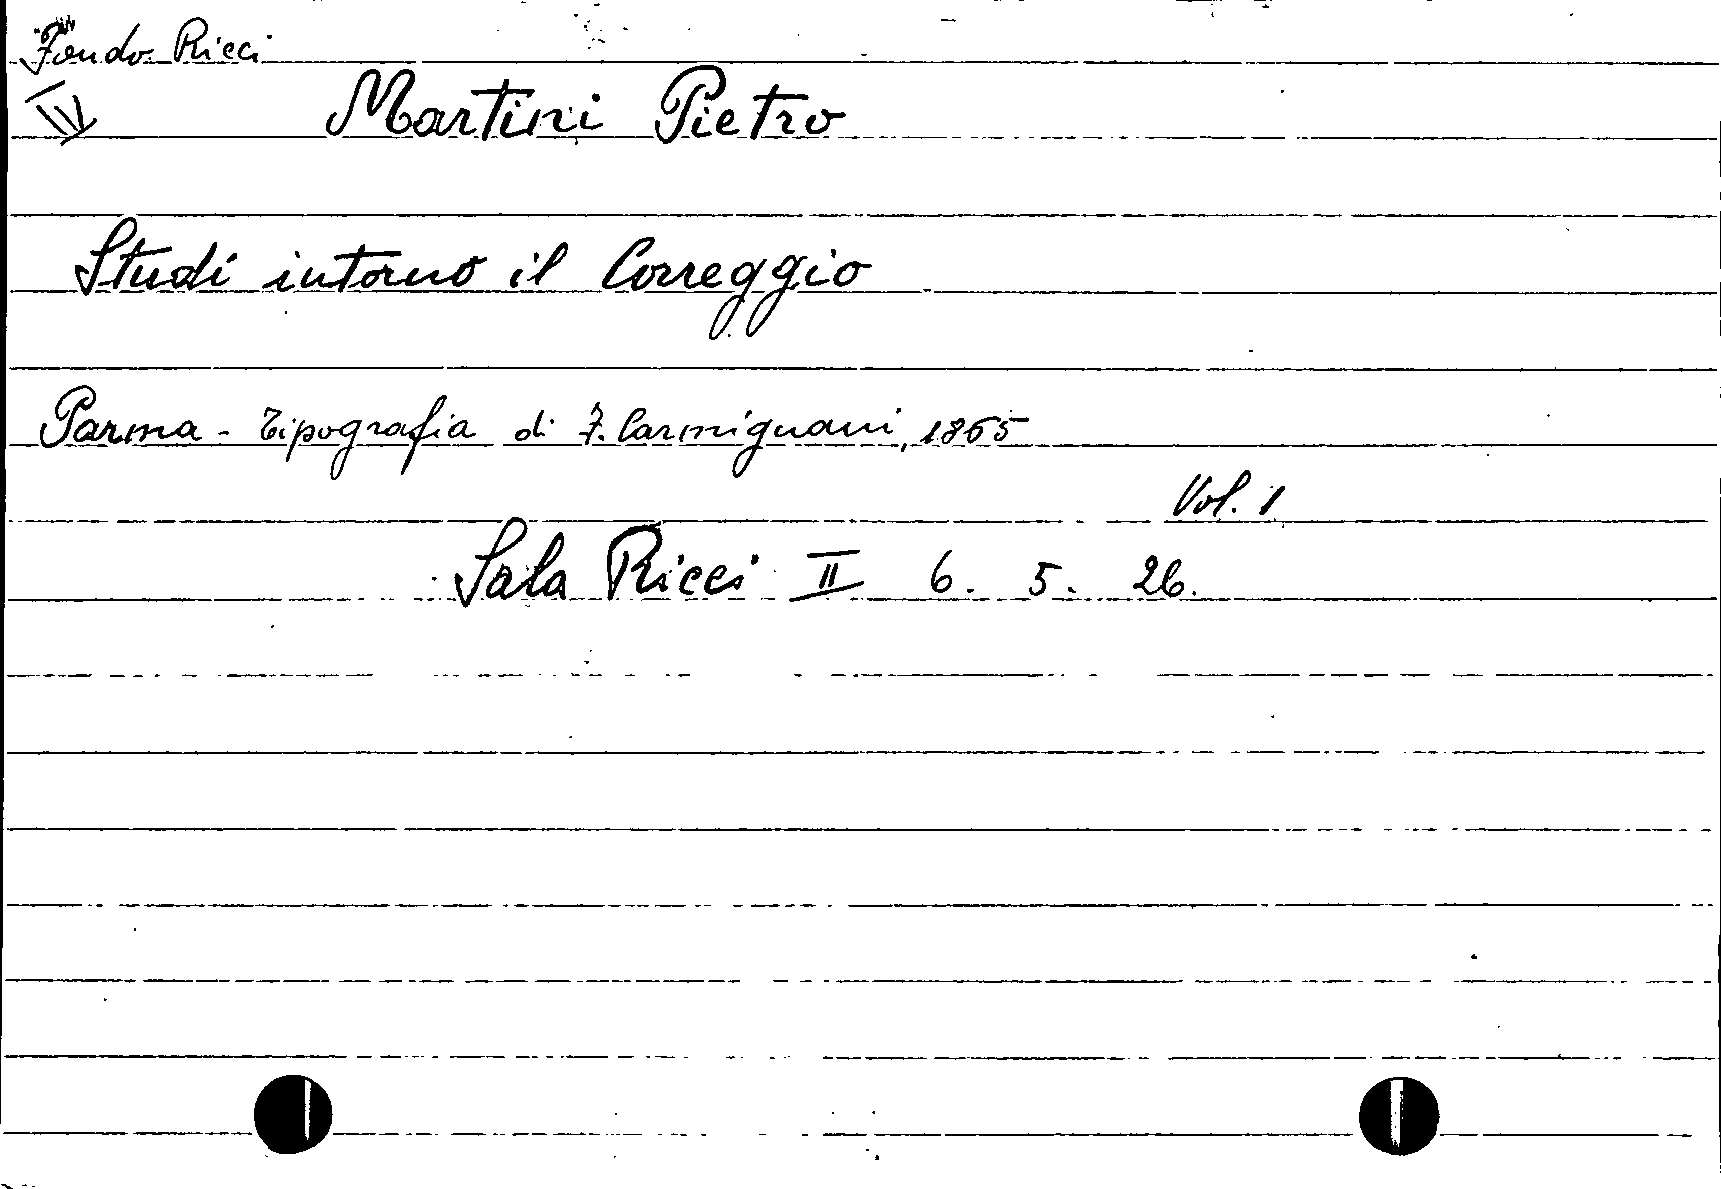 Fondo Ricci
IV
Martini Pietro
Studi intorno il Correggio
Parma - Tipografia di F. Carmignani, 1865
Vol. 1
Sala Ricci II 6. 5. 26.